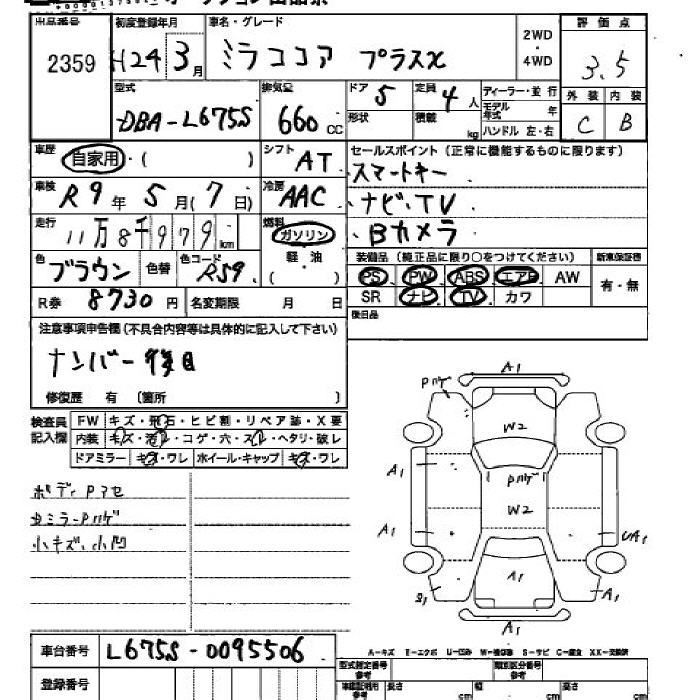 出品番号 初度登録年月 車名・グレード 2WD・4WD 評価点
2359 H24 3月 ミラココア プラスX 3.5
型式 排気量 ドア 5 定員 4人 ディーラー・並行 外装 内装
DBA-L675S 660cc 形状 積載 kg モデル年式 年 C B
ハンドル 左・右
車歴 自家用・( ) シフト AT セールスポイント(正常に機能するものに限ります)
スマートキー
車検 R9年5月(7日) 冷房 AAC
ナビ、TV
走行 11万8千979km 燃料 ガソリン
Bカメラ
軽・油
( )
色 ブラウン 色替 色コード R59
装備品(純正品に限り○をつけてください) 新車保証書
PS PW ABS エアB AW 有・無
R券 8730円 名変期限 月 日 SR ナビ TV カワ
後日品
注意事項申告欄(不具合内容等は具体的に記入して下さい)
ナンバー後日
修復歴 有 〔箇所 〕
検査員記入欄 FW キズ・飛石・ヒビ割・リペア跡・X要
内装 キズ・汚レ・コゲ・穴・スレ・ヘタリ・破レ
ドアミラー キズ・ワレ ホイール・キャップ キズ・ワレ
ボディPマセ
カミラーPハゲ
小キズ、小凹
A1
Pハゲ
W2
A1
Pハゲ
W2
A1
UA1
A1
S1
A1
A1
A-キズ E-エクボ U-凹み W-補修跡 S-サビ C-腐食 XX-交換済
車台番号 L675S-0095506
型式指定番号 類別区分番号
登録番号 車庫証明用参考 長さ cm 幅 cm 高さ cm